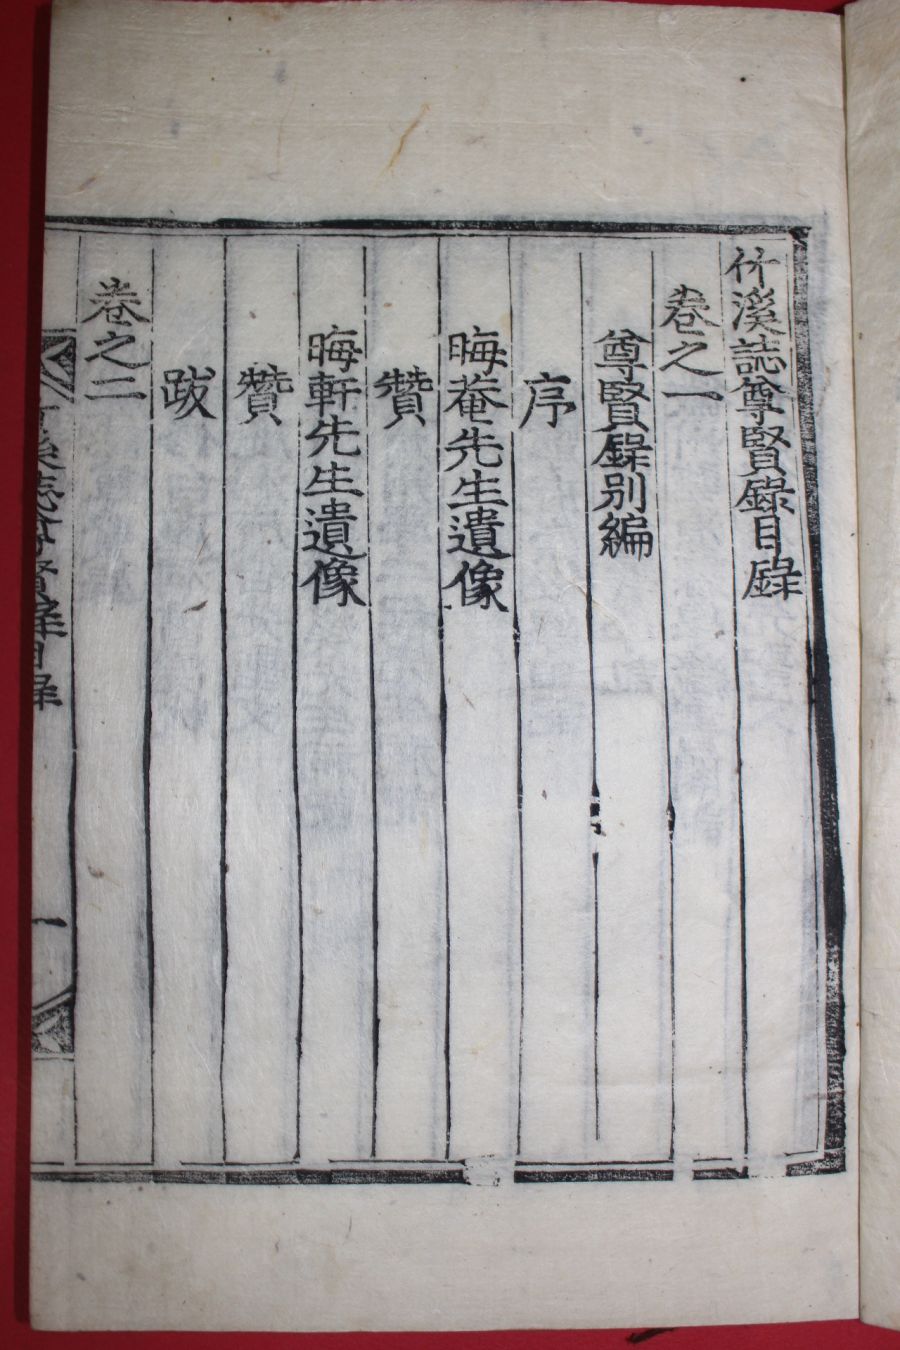 竹溪誌尊賢錄目錄
卷之一
尊賢錄別編
序
晦菴先生遺像
贊
晦軒先生遺像
贊
跋
卷之二
竹溪志尊賢錄目錄
一